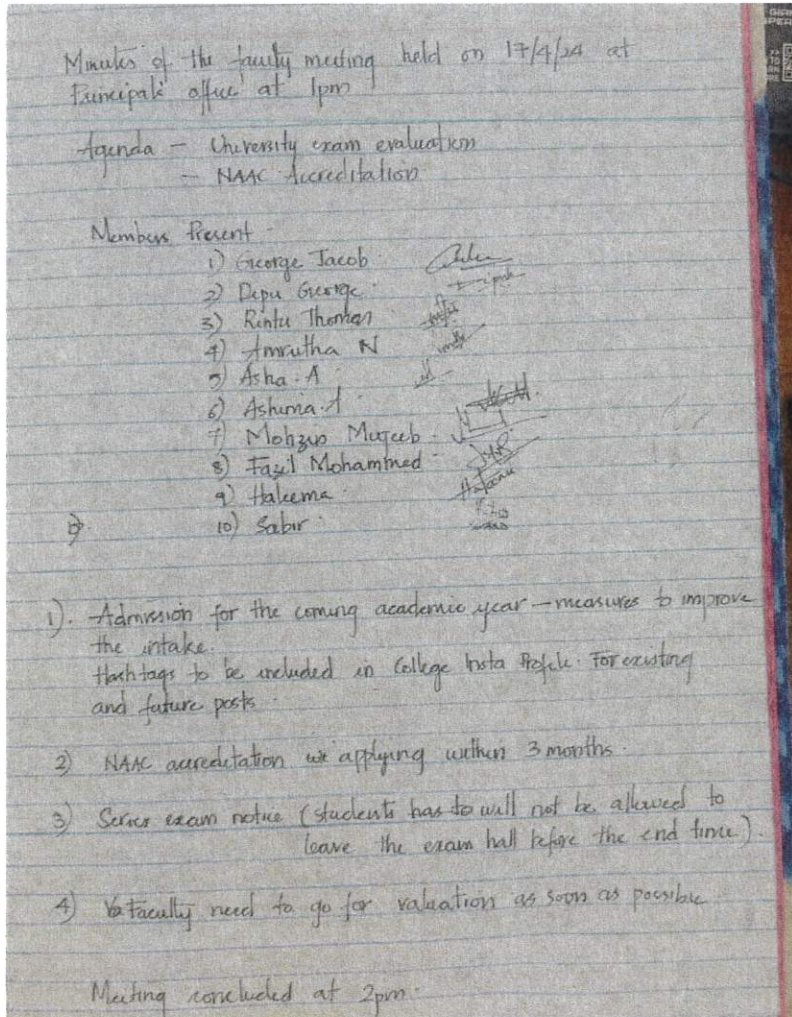 Minutes of the faculty meeting held on 17/4/24 at
Principal's office at 1pm
Agenda – University exam evaluation
– NAAC Accreditation
Members Present
1) George Jacob
2) Depu George
3) Rintu Thomas
4) Amrutha N
5) Asha. A
6) Ashima. A
7) Mohzin Mujeeb
8) Fazil Mohammed
9) Haleema
10) Sabir
1). Admission for the coming academic year – measures to improve
the intake.
Hashtags to be included in College Insta Profile. For existing
and future posts.
2) NAAC accreditation we applying within 3 months.
3) Series exam notice (students has to will not be allowed to
leave the exam hall before the end time).
4) Faculty need to go for valuation as soon as possible
Meeting concluded at 2pm.